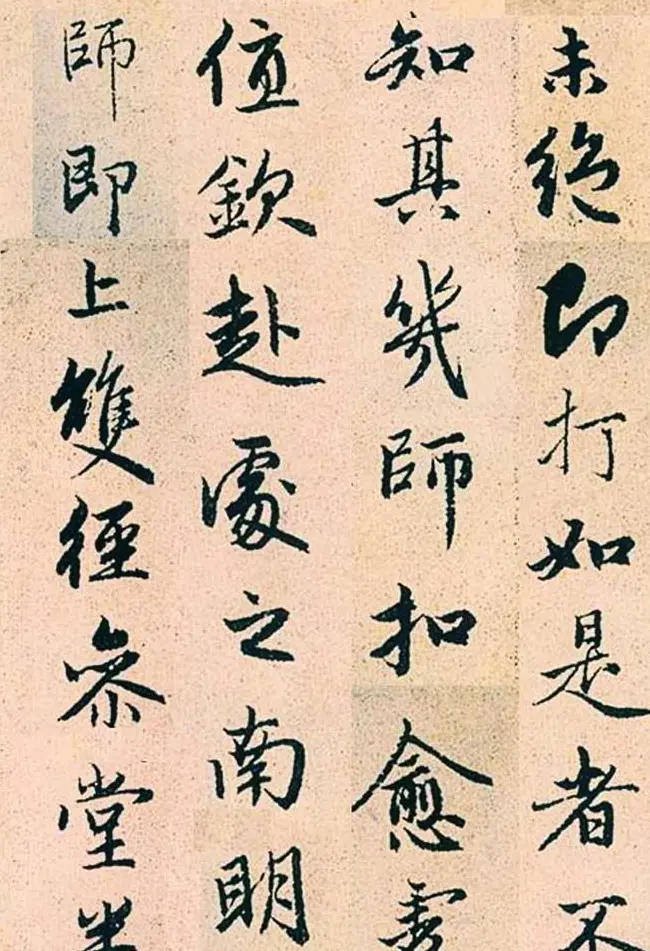 未絕即打如是者不
知其幾師扣愈虔
值欽赴處之南明
師即上雙徑參堂半